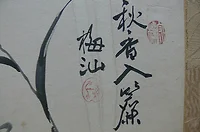 秋香入簾
梅汕